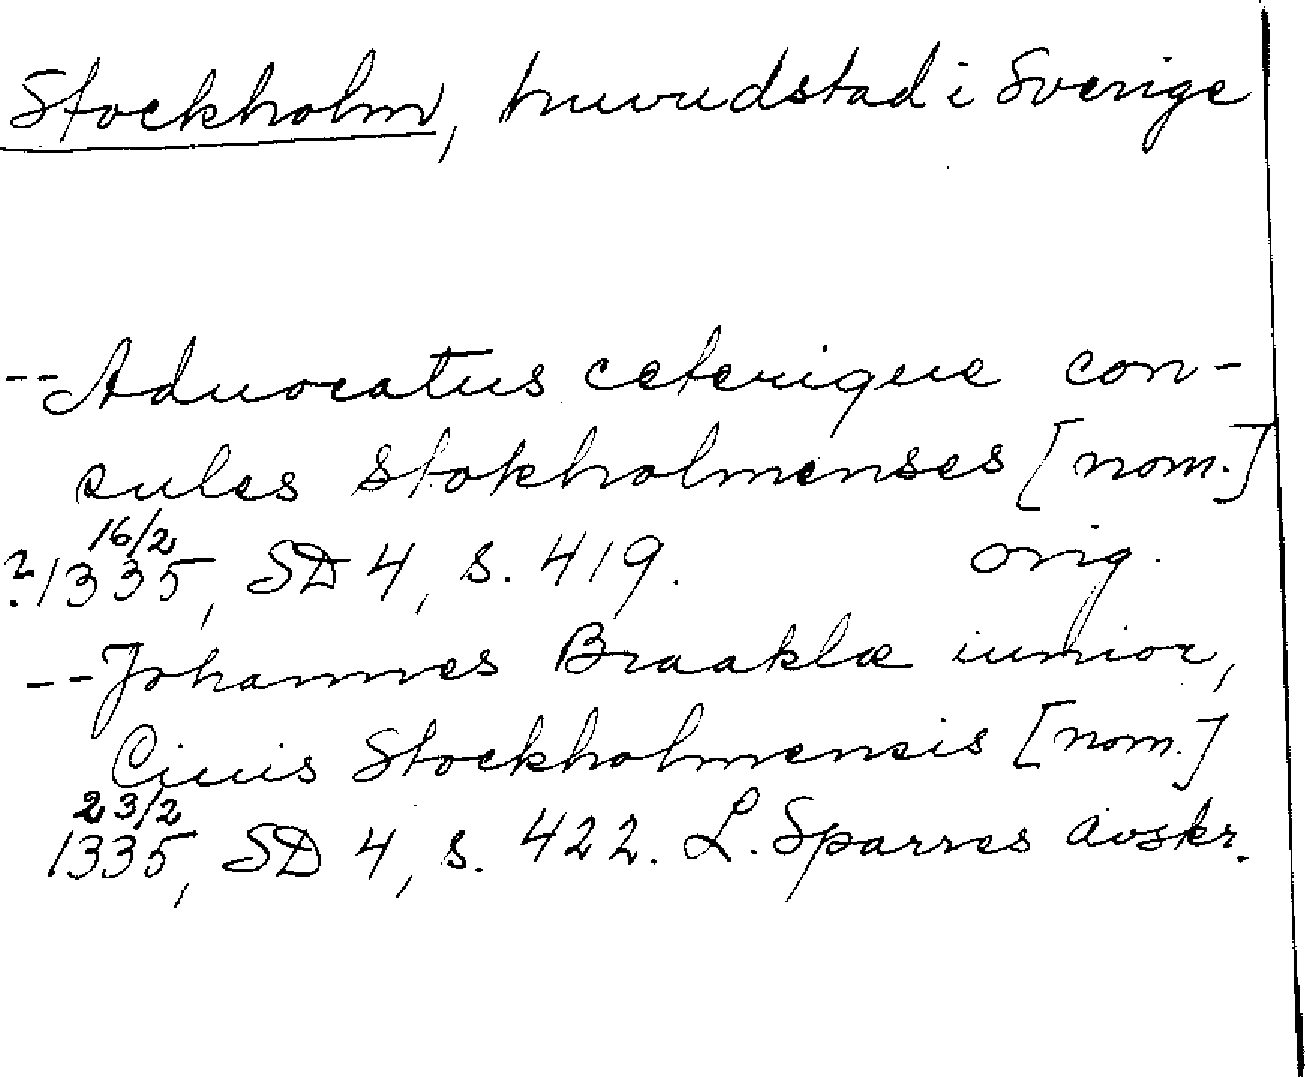 Stockholm, huvudstad i Sverige
-- Aduocatus ceterique con-
sules stokholmenses [nom.]
16/2
? 1335, SD 4, s. 419. orig.
-- Johannes Braaklæ iunior,
Ciuis Stockholmensis [nom.]
23/2
1335, SD 4, s. 422. L. Sparres avskr.